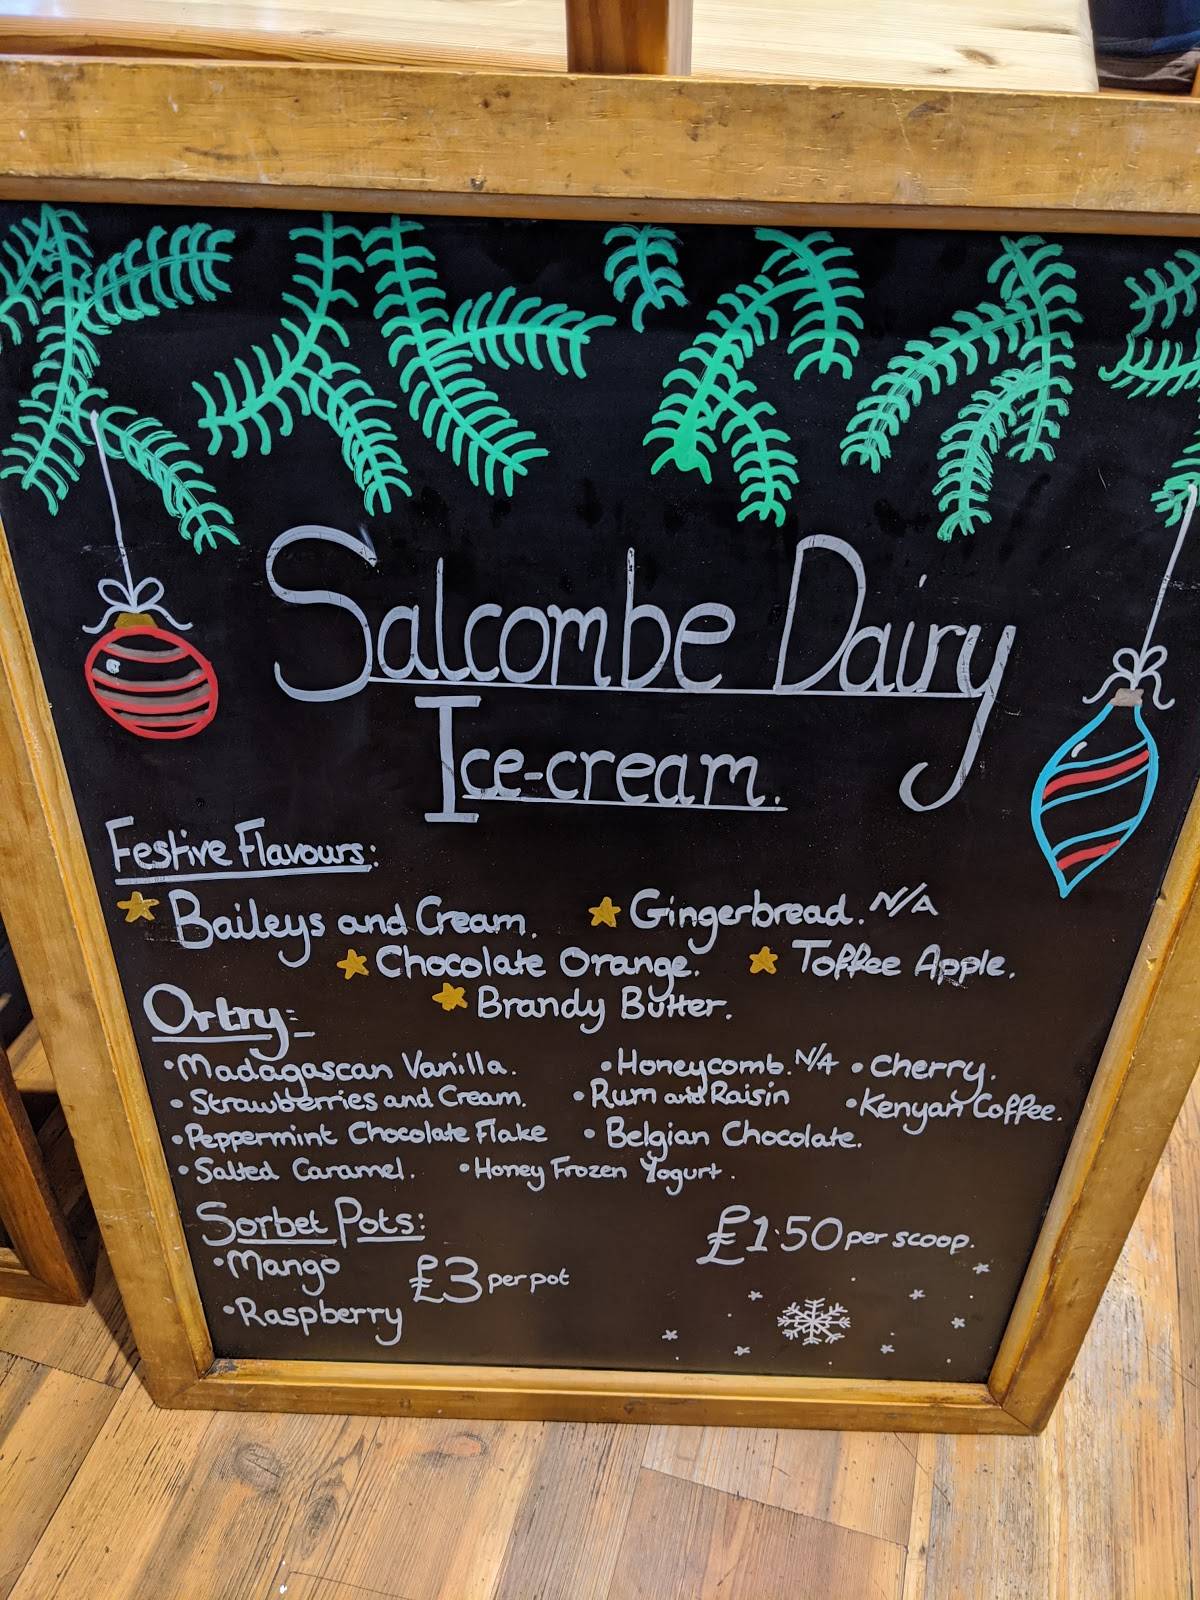 Salcombe Dairy
Ice-cream.
Festive Flavours:
Baileys and Cream. Gingerbread. N/A
Chocolate Orange. Toffee Apple.
Brandy Butter.
Or try:-
• Madagascan Vanilla. • Honeycomb. N/A • Cherry.
• Strawberries and Cream. • Rum and Raisin • Kenyan Coffee.
• Peppermint Chocolate Flake • Belgian Chocolate.
• Salted Caramel. • Honey Frozen Yogurt.
Sorbet Pots:
• Mango
• Raspberry
£3 per pot
£1.50 per scoop.